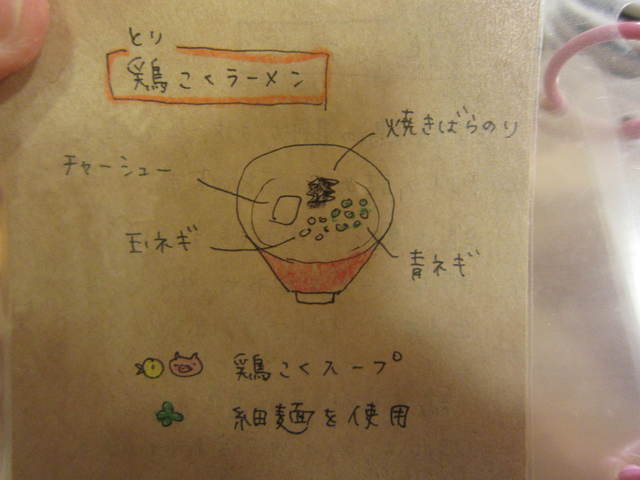 とり
鶏こくラーメン
焼きばらのり
チャーシュー
玉ネギ
青ネギ
鶏こくスープ
細麺を使用